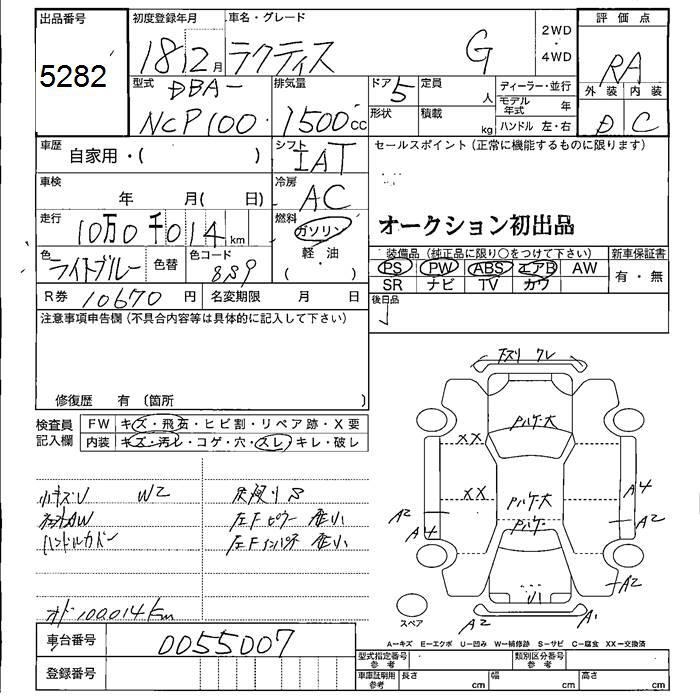 出品番号
5282
初度登録年月
18 12月
車名・グレード
ラクティス G
2WD
・
4WD
評価点
RA
外装 内装
D C
型式
DBA-
NCP100
排気量
1500cc
ドア
5
定員
人
形状
積載
kg
ディーラー・並行
モデル年式 年
ハンドル 左・右
車歴
自家用・( )
シフト
IAT
車検
年 月( 日)
冷房
AC
走行
10万0千014km
燃料
ガソリン
軽・油
( )
色
ライトブルー
色替
色コード
8S9
R券 10670円
名変期限 月 日
セールスポイント(正常に機能するものに限ります)
オークション初出品
装備品(純正品に限り○をつけて下さい)
PS PW ABS エアB AW
SR ナビ TV カワ
新車保証書
有・無
後日品
注意事項申告欄(不具合内容等は具体的に記入して下さい)
修復歴 有(箇所 )
検査員記入欄
FW キズ・飛石・ヒビ割・リペア跡・X要
内装 キズ・汚レ・コゲ・穴・スレ・キレ・破レ
小キズU W2
社外AW
ハンドルカバー
左Fピラー
左Fインパネ
オド100,014km
下スリ ワレ
パケ大
XX
XX
パケ大
パケ
A2
A4
A4
A2
A2
U1
A2
A1
スペア
A−キズ E−エクボ U−凹み W−補修跡 S−サビ C−腐食 XX−交換済
車台番号
0055007
登録番号
型式指定番号
参考
類別区分番号
参考
車庫証明用
参考
長さ cm
幅 cm
高さ cm